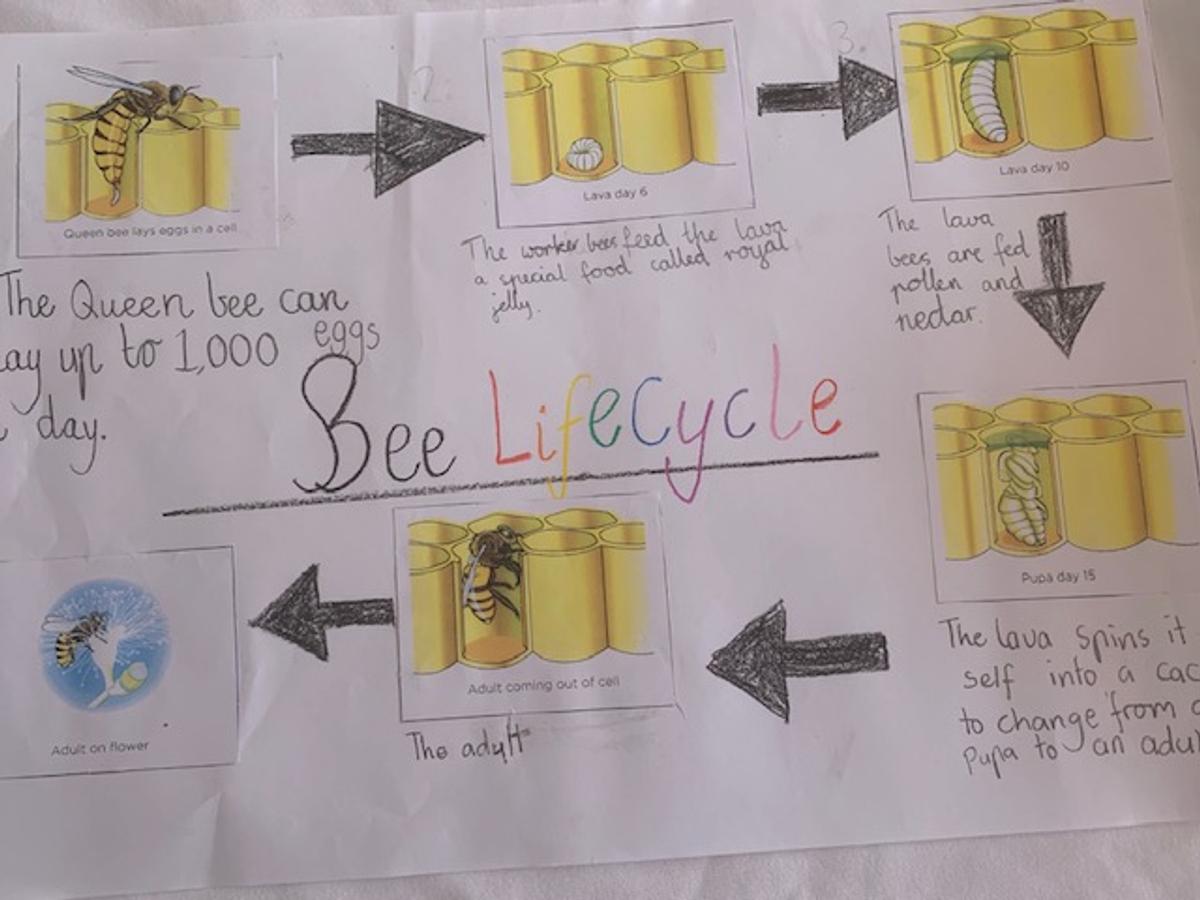 2.
3.
Queen bee lays eggs in a cell
Lava day 6
Lava day 10
The Queen bee can
lay up to 1,000 eggs
day.
The worker bees feed the lava
a special food called royal
jelly.
The lava
bees are fed
pollen and
nectar.
Bee LifeCycle
Pupa day 15
The lava spins it
self into a
to change from
pupa to an
Adult coming out of cell
The adult
Adult on flower